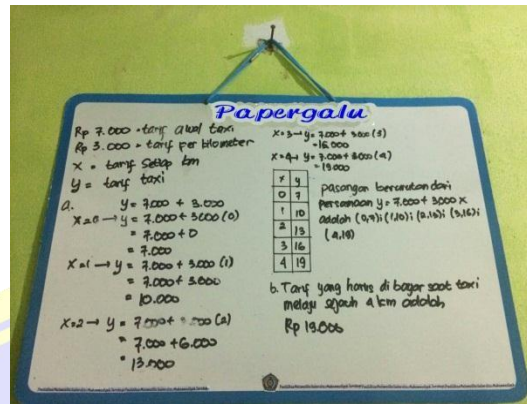 Papergalu
Rp 7.000 = tarif awal taxi
Rp 3.000 = tarif per kilometer
x = tarif setiap km
y = tarif taxi
a. y = 7.000 + 3.000
x=0 → y = 7.000 + 3000 (0)
= 7.000 + 0
= 7.000
x=1 → y = 7.000 + 3.000 (1)
= 7.000 + 3.000
= 10.000
x=2 → y = 7.000 + 3.000 (2)
= 7.000 + 6.000
= 13.000
x=3 → y = 7.000 + 3.000 (3)
= 16.000
x=4 → y = 7.000 + 3.000 (4)
= 19.000
x y
0 7
1 10
2 13
3 16
4 19
pasangan berurutan dari
persamaan y = 7.000 + 3000 x
adalah (0,7); (1,10); (2,13); (3,16);
(4,19)
b. Tarif yang harus di bayar saat taxi
melaju sejauh 4 km adalah
Rp 19.000